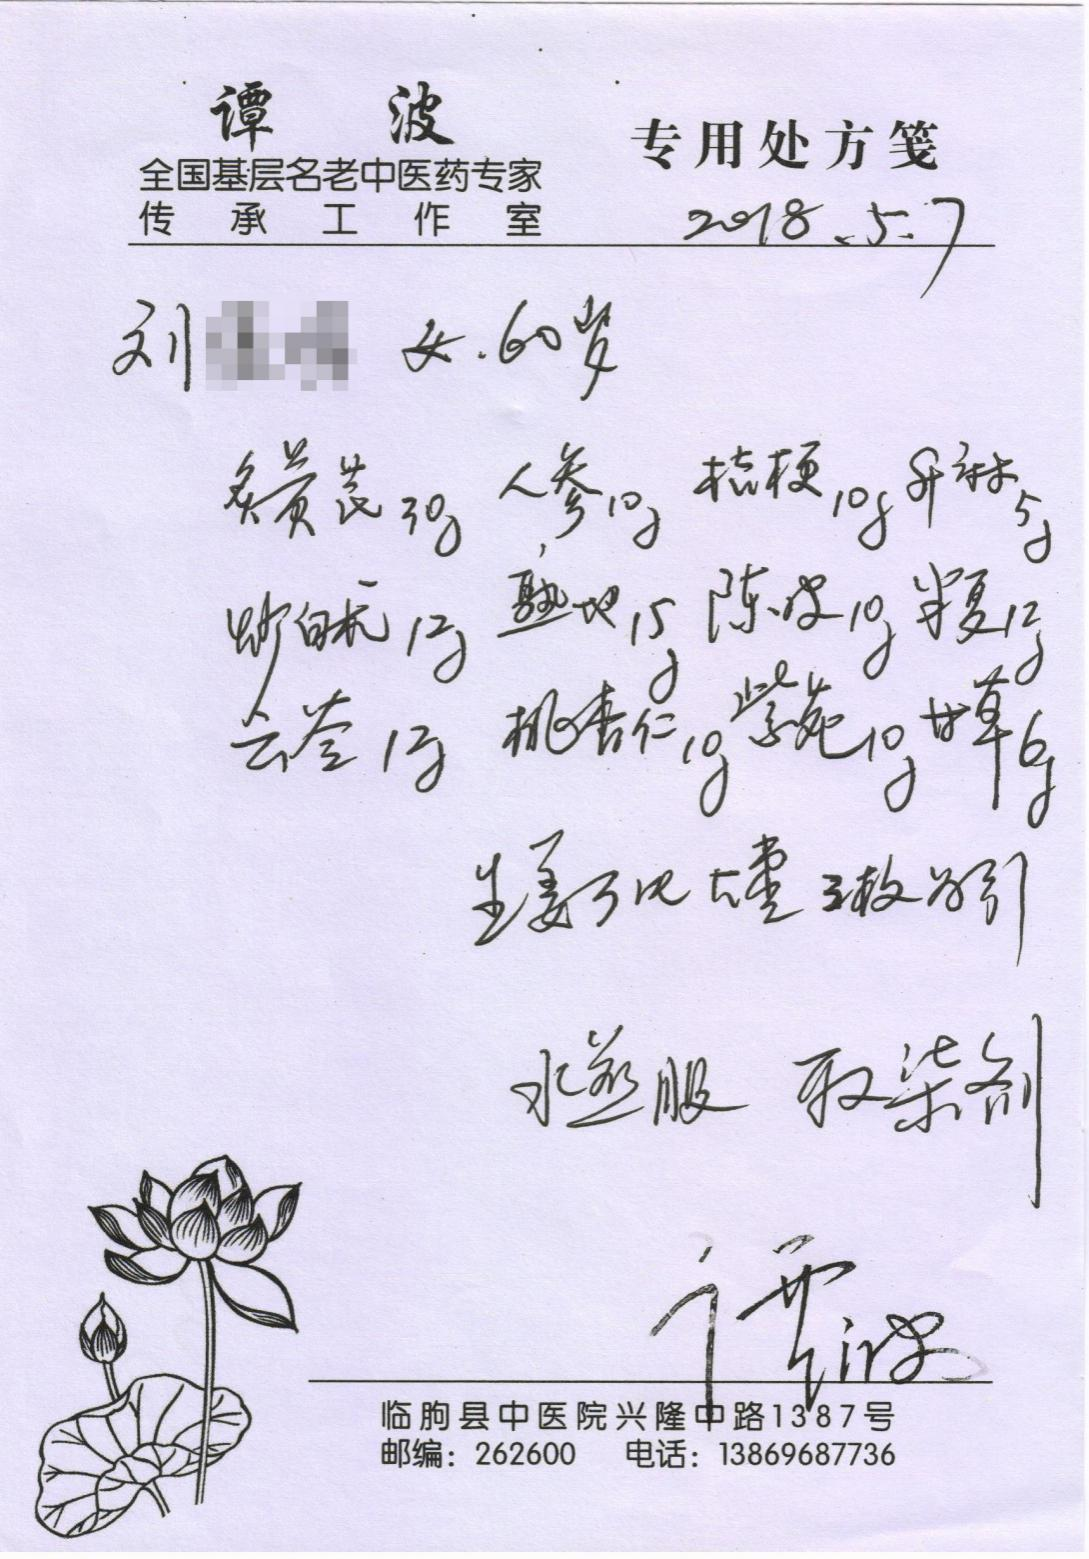 谭 波
专用处方笺
全国基层名老中医药专家
传承工作室
2018.5.7
刘 女.60岁
炙黄芪30g 人参10g 桔梗10g 升麻5g
炒白术12g 熟地15g 陈皮10g 半夏12g
云苓12g 桃杏仁10g 紫菀10g 甘草6g
生姜 大枣三枚为引
水煎服 取柒剂
谭波
临朐县中医院兴隆中路1387号
邮编：262600 电话：13869687736